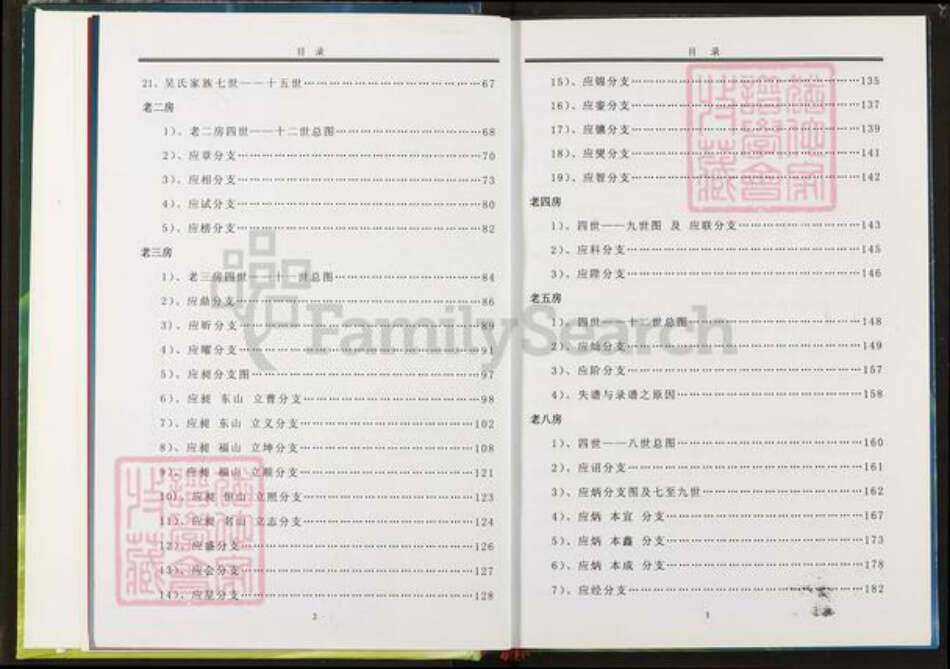 目 录
21、吴氏家族七世——十五世……67
老二房
1）、老二房四世——十二世总图……68
2）、应章分支……70
3）、应相分支……73
4）、应试分支……80
5）、应榜分支……82
老三房
1）、老三房四世——十一世总图……84
2）、应勋分支……86
3）、应昕分支……89
4）、应曜分支……91
5）、应昶分支图……97
6）、应昶 东山 立曹分支……98
7）、应昶 东山 立义分支……102
8）、应昶 福山 立坤分支……108
9）、应昶 福山 立顺分支……121
10）、应昶 恒山 立熙分支……123
11）、应昶 名山 立志分支……124
12）、应盛分支……126
13）、应会分支……127
14）、应星分支……128
2
目 录
15）、应锦分支……135
16）、应銮分支……137
17）、应镳分支……139
18）、应燮分支……141
19）、应智分支……142
老四房
1）、四世——九世图 及 应联分支……143
2）、应科分支……145
3）、应跸分支……146
老五房
1）、四世——十二世总图……148
2）、应灿分支……149
3）、应阶分支……157
4）、失谱与录谱之原因……158
老八房
1）、四世——八世总图……160
2）、应诏分支……161
3）、应炳分支图及七至九世……162
4）、应炳 本宜 分支……167
5）、应炳 本鑫 分支……173
6）、应炳 本成 分支……178
7）、应经分支……182
FamilySearch